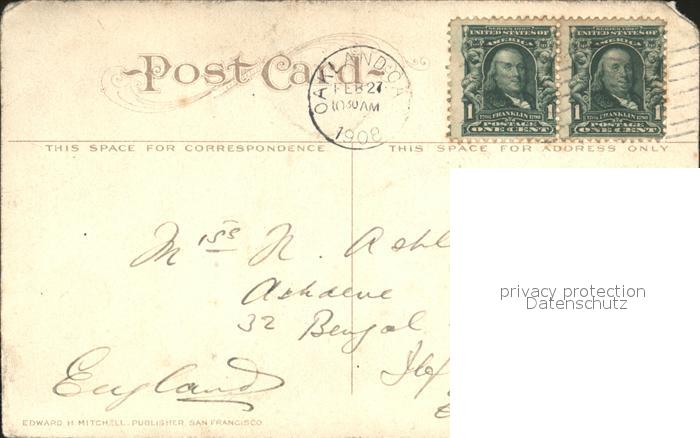 Post Card
OAKLAND, CA.
FEB 27
10 30 AM
1908
SERIES 1902
UNITED STATES OF
AMERICA
1 1
1706 FRANKLIN 1790
POSTAGE
ONE CENT
SERIES 1902
UNITED STATES OF
AMERICA
1 1
1706 FRANKLIN 1790
POSTAGE
ONE CENT
THIS SPACE FOR CORRESPONDENCE
THIS SPACE FOR ADDRESS ONLY
Miss N.
32 Bengal
England
EDWARD H. MITCHELL, PUBLISHER, SAN FRANCISCO
privacy protection
Datenschutz